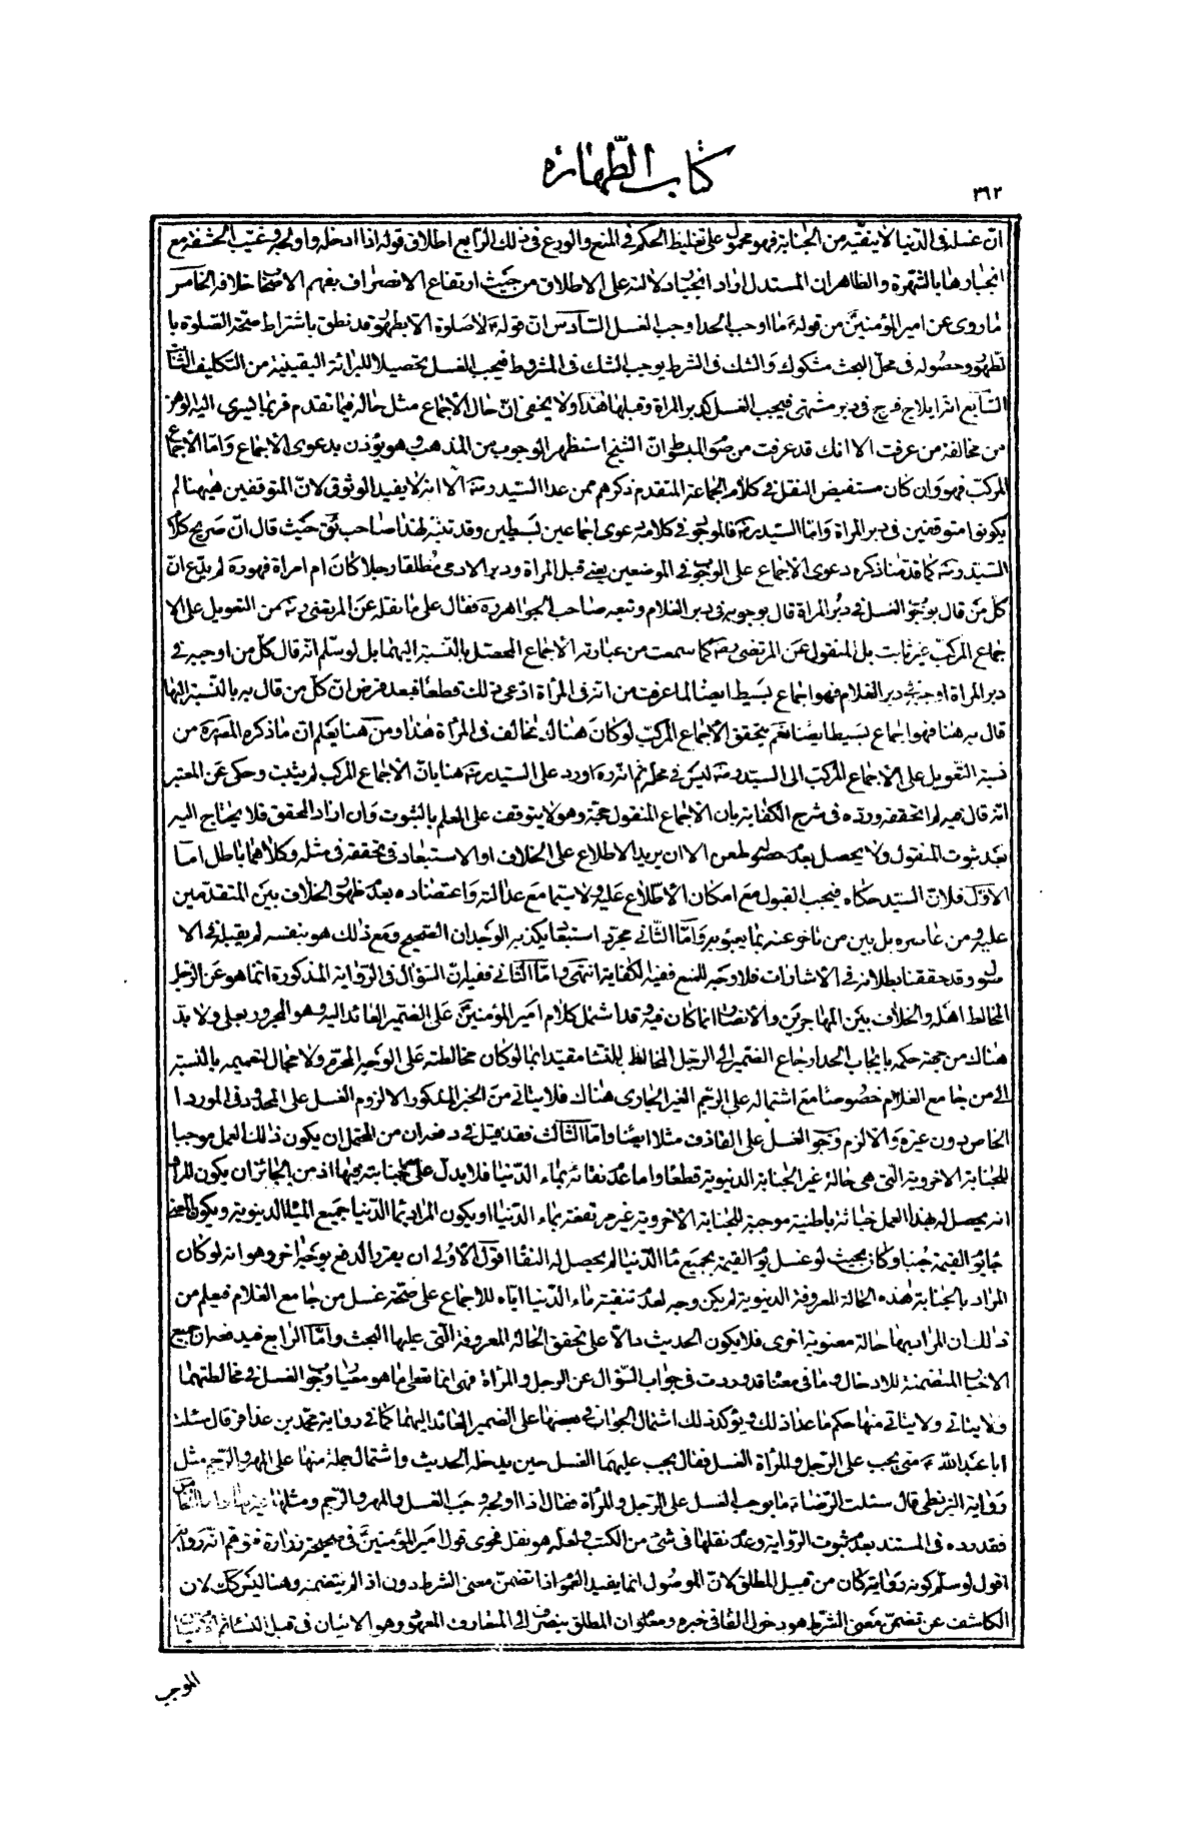 كتاب الطهارة
٣٩٢
ان غسله فى الدنيا لا ينقيه من الجنابة فهو محمول على تغليظ الحكم فى المنع والورع عن ذلك الرابع اطلاق قوله اذا ادخله واولجه وغيب الحشفة مع
انجبارها بالشهرة والظاهر ان المستدل اراد انجبار دلالته على الاطلاق من حيث ارتفاع الانصراف بفهم الاصحاب خلافه الخامس
ما روى عن امير المؤمنين من قوله ع ما اوجب الحد اوجب الغسل السادس ان قوله ع لا صلوة الا بطهور قد نطق باشتراط صحة الصلوة با
لطهور وحصوله فى محل البحث مشكوك والشك فى الشرط يوجب الشك فى المشروط فيجب الغسل تحصيلا للبرائة اليقينية من التكليف الثابت
السابع انه ايلاج فرج فى دبر مشتهى فيجب الغسل كدبر المراة وقبلها هذا ولا يخفى ان حال الاجماع مثل حاله فيما تقدم فربما يسرى اليه الوهن
من مخالفة من عرفت الا انك قد عرفت من صوم المبسوط ان الشيخ استظهر الوجوب من المذهب وهو يؤذن بدعوى الاجماع واما الاجماع
المركب فهو وان كان مستفيض النقل فى كلام الجماعة المتقدم ذكرهم ممن عدا السيد ره الا انه لا يفيد الوثوق لان المتوقفين هيهنا لم
يكونوا متوقفين فى دبر المراة واما السيد ره فالموجود فى كلامه دعوى اجماعين بسيطين وقد تنبه لهذا صاحب ئق حيث قال ان صريح كلام
السيد ره كما قدمنا ذكره دعوى الاجماع على الوجوب فى الموضعين يعنى قبل المراة ودبر الادمى مطلقا رجلا كان ام امراة فهو ره لم يدع ان
كل من قال بوجوب الغسل فى دبر المراة قال بوجوبه فى دبر الغلام وتبعه صاحب الجواهر ره فقال على ما نقله عن المرتضى ره من التعويل على الا
جماع المركب غير ثابت بل المنقول عن المرتضى ره كما سمعت من عبارته الاجماع المحصل بالنسبة اليهما بل لو سلم انه قال كل من اوجبه فى
دبر المراة اوجبه فى دبر الغلام فهو اجماع بسيط ايضا لما عرفت من انه فى المراة ادعى ذلك قطعا فبعد فرض ان كل من قال به بالنسبة اليها
قال به هنا فهو اجماع بسيط ايضا نعم يتحقق الاجماع المركب لو كان هناك تخالف فى المراة هذا ومن هنا يعلم ان ما ذكره المص ره من
نسبة التعويل على الاجماع المركب الى السيد ره ليس فى محله ثم انه ره اورد على السيد ره هنا بان الاجماع المركب لم يثبت وحكى عن المعتبر
انه قال فيه لم اتحققه ورده فى شرح الكفاية بان الاجماع المنقول حجة وهو لا يتوقف على العلم بالثبوت وان اراد المحقق فلا يحتاج اليه
بعد ثبوت المنقول ولا يحصل بعد طعن الا ان يريد الاطلاع على الخلاف او الاستبعاد فى تحققه فى مثله وكلاهما باطل اما
الاول فلان السيد حكاه فيجب القبول مع امكان الاطلاع عليه ولا سيما مع عدالته واعتضاده بعدم ظهور الخلاف بين المتقدمين
عليه ومن عاصره بل بين من تاخر عنه بما يعبؤ به واما الثانى مجرد استبعاد يكذبه الوجدان الصحيح ومع ذلك هو بنفسه لم يقبله فى الا
صول وقد حققنا بطلانه فى الاشارات فلا وجه للمنع ففيه الكفاية انتهى واما الثانى ففيه ان السؤال فى الرواية المذكورة انما هو عن الرجل
المخالط اهله والخلاف بين المهاجرين والانصار انما كان فيه وقد اشتمل كلام امير المؤمنين على الضمير العائد اليه وهو المجرور بعلى ولا بد
هناك من جهة حكمه بايجاب الحد ارجاع الضمير الى الرجل المخالط للنساء مقيدا بما لو كان مخالطته على الوجه المحرم ولا مجال لتعميمه بالنسبة
الى من جامع الغلام خصوصا مع اشتماله على الرجم الغير الجارى هناك فلا يتاتى من الخبر المذكور الا لزوم الغسل على المحدود فى المورد ا
لخاص دون غيره والا لزم وجوب الغسل على القاذف مثلا ايضا واما الثالث فقد قيل فى دفعه ان من المحتمل ان يكون ذلك العمل موجبا
للجنابة الاخروية التى هى حالة غير الجنابة الدنيوية قطعا واما عدم نقائه بماء الدنيا فلا يدل على الجنابة فيها اذ من الجائز ان يكون المراد
انه يحصل له بهذا العمل خباثة باطنية موجبة للجنابة الاخروية غير مرتفعة بماء الدنيا او يكون المراد بماء الدنيا جميع المياه الدنيوية ويكون المعنى
جاء يوم القيمة جنبا وكان بحيث لو غسل يوم القيمة بجميع ماء الدنيا لم يحصل له النقاء اقول الاولى ان يقرر الدفع بوجه اخر وهو انه لو كان
المراد بالجنابة هذه الحالة المعروفة الدنيوية لم يكن وجه لعدم تنقية ماء الدنيا اياه للاجماع على صحة غسل من جامع الغلام فيعلم من
ذلك ان المراد بها حالة معنوية اخرى فلا يكون الحديث دالا على تحقق الحالة المعروفة التى عليها البحث واما الرابع ففيه ان جميع
الاخبار المتضمنة للادخال وما فى معناه قد وردت فى جواب السؤال عن الرجل والمراة فهى انما تعطى ما هو معيار وجوب الغسل فى مخالطتهما
ولا ينافى ولا يتاتى منها حكم ما عدا ذلك ويؤكد ذلك اشتمال الجواب فى بعضها على الضمير العائد اليهما كما فى رواية محمد بن عذافر قال سئلت
ابا عبد الله ع متى يجب على الرجل والمراة الغسل فقال يجب عليهما الغسل حين يدخله الحديث واشتمال جملة منها على المهر والرجم مثل
رواية البزنطى قال سئلت الرضا ع ما يوجب الغسل على الرجل والمراة فقال اذا اولجه وجب الغسل والمهر والرجم ومثلها غيرها واما الخامس
فقد رده فى المستند بعدم ثبوت الرواية وعدم نقلها فى شئ من الكتب ولعله هو نقل فحوى قول امير المؤمنين فى صحيحة زرارة فتوهم انه رواية
اقول لو سلم كونه رواية كان من قبيل المطلق لان الموصول انما يفيد العموم اذا تضمن معنى الشرط دون اذا لم يتضمنه وهنا ليس كك لان
الكاشف عن تضمن معنى الشرط هو دخول الفاء فى خبره ومعلوم ان المطلق ينصرف الى المتعارف المعهود وهو الاتيان فى قبل النساء
الموجب